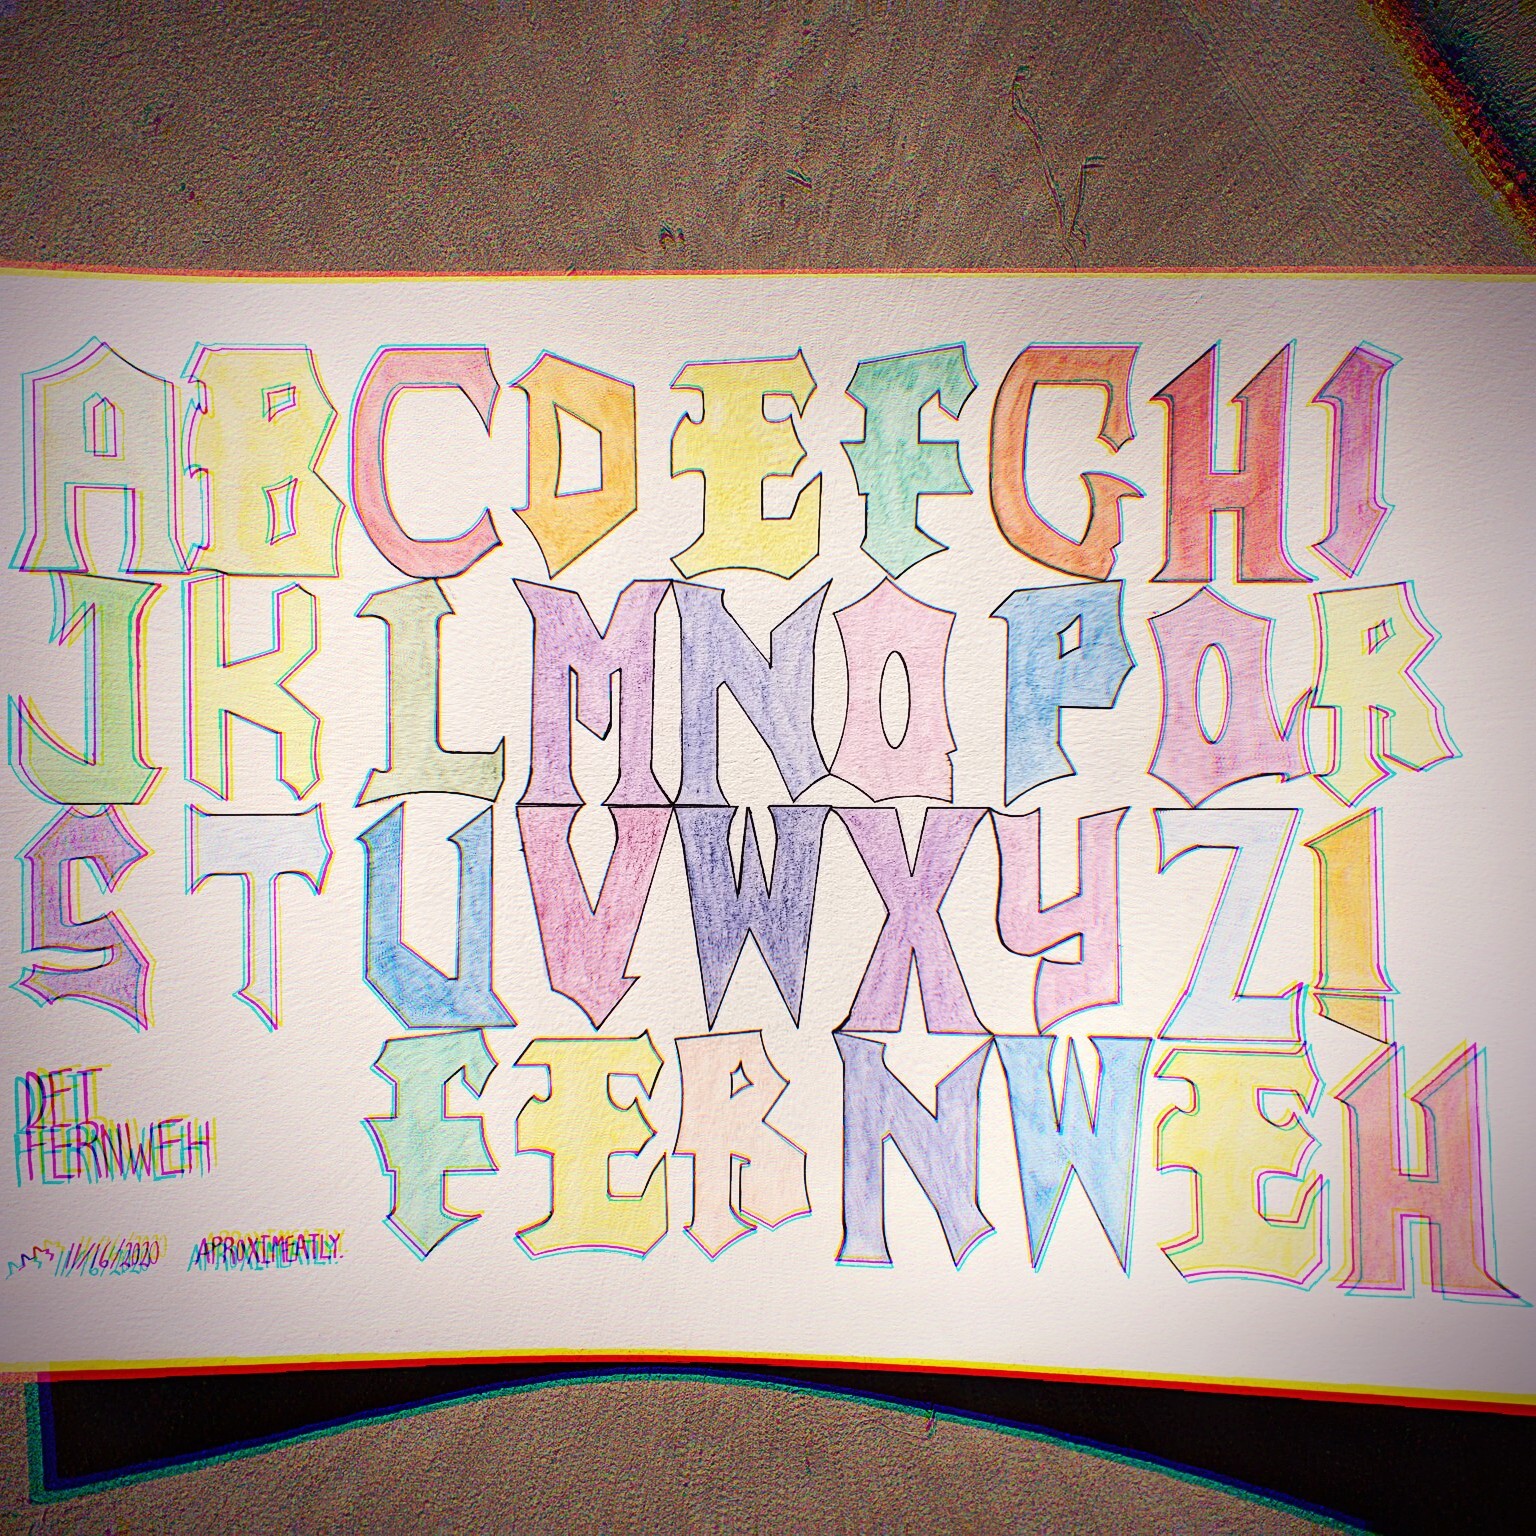 ABCDEFGHI
JKLMNOPQR
STUVWXYZ!
FERNWEH
DETT
FERNWEH
11/16/2020 APROXIMEATLY.